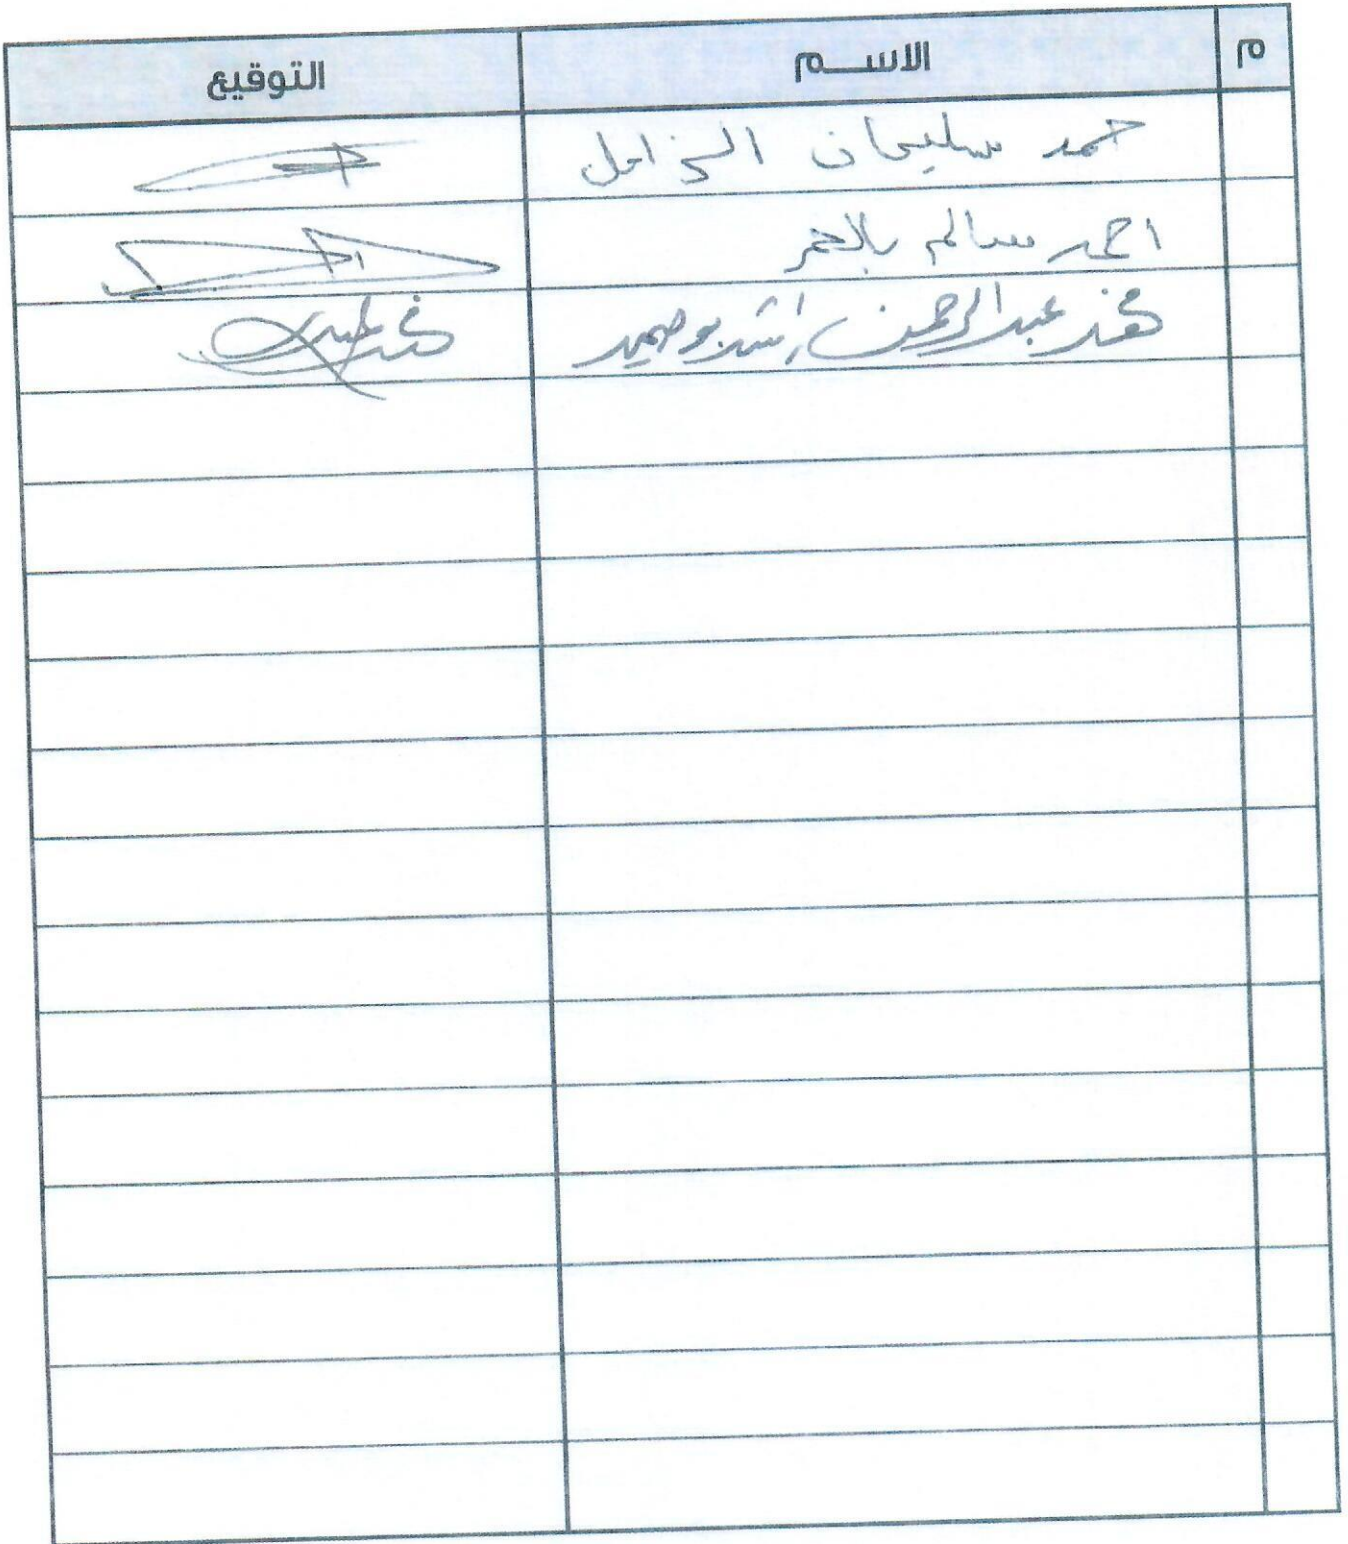 م الاسم التوقيع
حمد سليمان الزامل
احمد سالم بالحمر
فهد عبدالرحمن راشد بوحميد